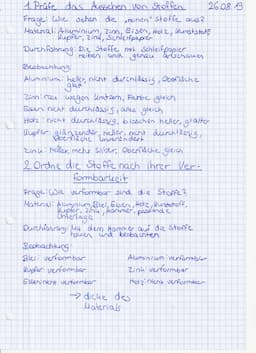 1. Prüfe das Aussehen von Stoffen 26.08.19
Frage: Wie sehen die "reinen" Stoffe aus?
Material: Aluminium, Zinn, Eisen, Holz, Kunststoff
Kupfer, Zink, Schleifpapier
Durchführung: Die Stoffe mit Schleifpapier
reiben und genau anschauen
Beobachtung:
Aluminium: heller, nicht durchlässig, Oberfläche
glatt
Zinn: Farbe gleich
Eisen: nicht durchlässig, alles gleich
Holz: nicht durchlässig, bisschen heller, glatter
Kupfer: glänzender, heller, nicht durchlässig,
Oberfläche
Zink: heller, mehr Silber, Oberfläche gleich
2. Ordne die Stoffe nach ihrer Ver-
formbarkeit
Frage: Wie verformbar sind die Stoffe?
Material: Aluminium, Blei, Eisen, Holz, Kunststoff,
Kupfer, Zink, Hammer, passende
Unterlage
Durchführung: Mit dem Hammer auf die Stoffe
hauen und beobachten
Beobachtung:
Blei: verformbar Aluminium verformbar
Kupfer: verformbar Zink: verformbar
Eisen: nicht verformbar Holz: nicht verformbar
→ dicke des
Materials